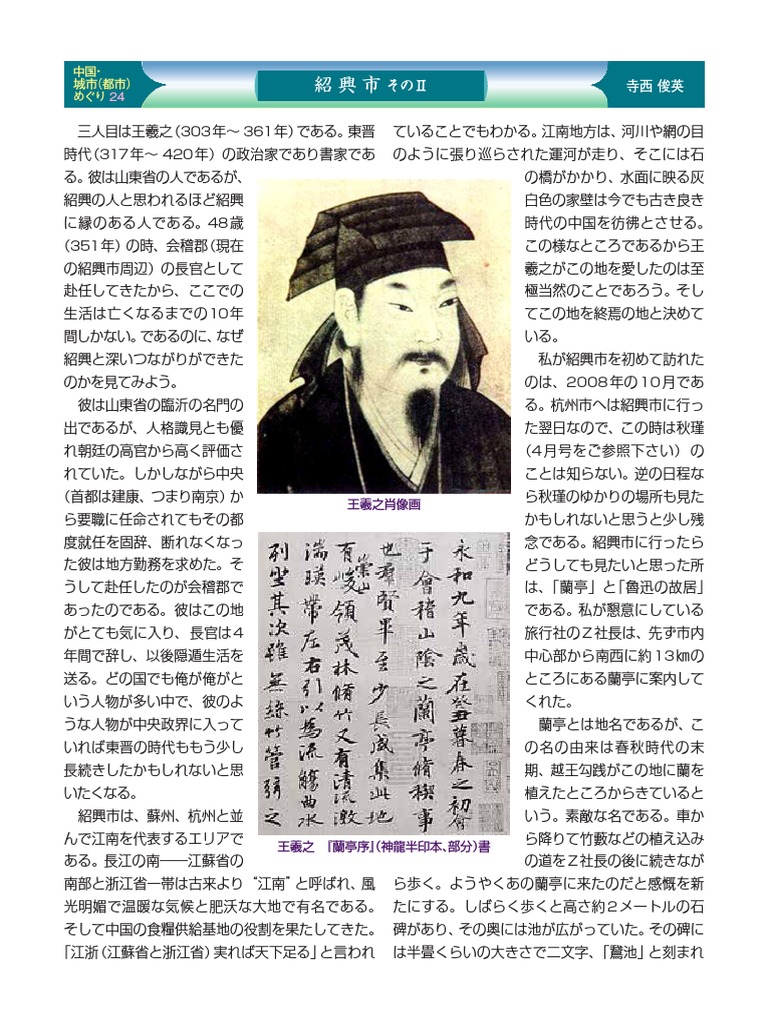 中国・
城市（都市）
めぐり 24
紹興市 そのⅡ
寺西 俊英
三人目は王羲之（303年～361年）である。東晋
時代（317年～420年）の政治家であり書家であ
る。彼は山東省の人であるが、
紹興の人と思われるほど紹興
に縁のある人である。48歳
（351年）の時、会稽郡（現在
の紹興市周辺）の長官として
赴任してきたから、ここでの
生活は亡くなるまでの10年
間しかない。であるのに、なぜ
紹興と深いつながりができた
のかを見てみよう。
彼は山東省の臨沂の名門の
出であるが、人格識見とも優
れ朝廷の高官から高く評価さ
れていた。しかしながら中央
（首都は建康、つまり南京）か
ら要職に任命されてもその都
度就任を固辞、断れなくなっ
た彼は地方勤務を求めた。そ
うして赴任したのが会稽郡で
あったのである。彼はこの地
がとても気に入り、長官は4
年間で辞し、以後隠遁生活を
送る。どの国でも俺が俺がと
いう人物が多い中で、彼のよ
うな人物が中央政界に入って
いれば東晋の時代ももう少し
長続きしたかもしれないと思
いたくなる。
紹興市は、蘇州、杭州と並
んで江南を代表するエリアで
ある。長江の南――江蘇省の
南部と浙江省一帯は古来より“江南”と呼ばれ、風
光明媚で温暖な気候と肥沃な大地で有名である。
そして中国の食糧供給基地の役割を果たしてきた。
「江浙（江蘇省と浙江省）実れば天下足る」と言われ
王羲之肖像画
永和九年歳在癸丑暮春之初會
于會稽山陰之蘭亭脩稧事
也羣賢畢至少長咸集此地
有崇山峻領茂林脩竹又有清流激
湍暎帶左右引以爲流觴曲水
列坐其次雖無絲竹管弦之
王羲之　『蘭亭序』（神龍半印本、部分）書
ていることでもわかる。江南地方は、河川や網の目
のように張り巡らされた運河が走り、そこには石
の橋がかかり、水面に映る灰
白色の家壁は今でも古き良き
時代の中国を彷彿とさせる。
この様なところであるから王
羲之がこの地を愛したのは至
極当然のことであろう。そし
てこの地を終焉の地と決めて
いる。
私が紹興市を初めて訪れた
のは、2008年の10月であ
る。杭州市へは紹興市に行っ
た翌日なので、この時は秋瑾
（4月号をご参照下さい）の
ことは知らない。逆の日程な
ら秋瑾のゆかりの場所も見た
かもしれないと思うと少し残
念である。紹興市に行ったら
どうしても見たいと思った所
は、「蘭亭」と「魯迅の故居」
である。私が懇意にしている
旅行社のＺ社長は、先ず市内
中心部から南西に約13㎞の
ところにある蘭亭に案内して
くれた。
蘭亭とは地名であるが、こ
の名の由来は春秋時代の末
期、越王勾践がこの地に蘭を
植えたところからきていると
いう。素敵な名である。車か
ら降りて竹藪などの植え込み
の道をＺ社長の後に続きなが
ら歩く。ようやくあの蘭亭に来たのだと感慨を新
たにする。しばらく歩くと高さ約2メートルの石
碑があり、その奥には池が広がっていた。その碑に
は半畳くらいの大きさで二文字、「鵞池」と刻まれ